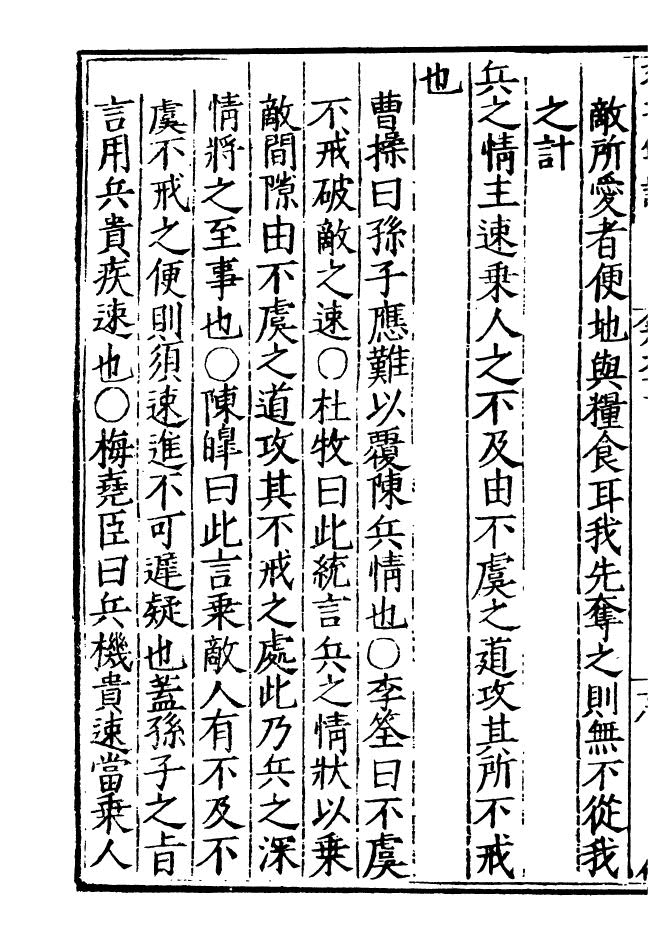 敵所愛者便地與糧食耳我先奪之則無不從我
之計
兵之情主速乗人之不及由不虞之道攻其所不戒
也
曹操曰孫子應難以覆陳兵情也○李筌曰不虞
不戒破敵之速○杜牧曰此統言兵之情狀以乗
敵間隙由不虞之道攻其不戒之處此乃兵之深
情將之至事也○陳皥曰此言乗敵人有不及不
虞不戒之便則須速進不可遲疑也蓋孫子之旨
言用兵貴疾速也○梅堯臣曰兵機貴速當乗人